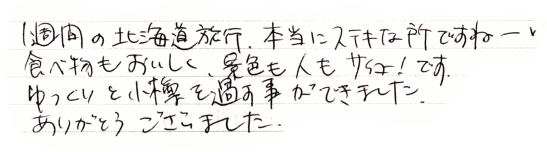 1週間の北海道旅行、本当にステキな所ですねー、
食べ物もおいしく、景色も人もサイコー!です。
ゆっくりと小樽を過す事ができました。
ありがとうございました。